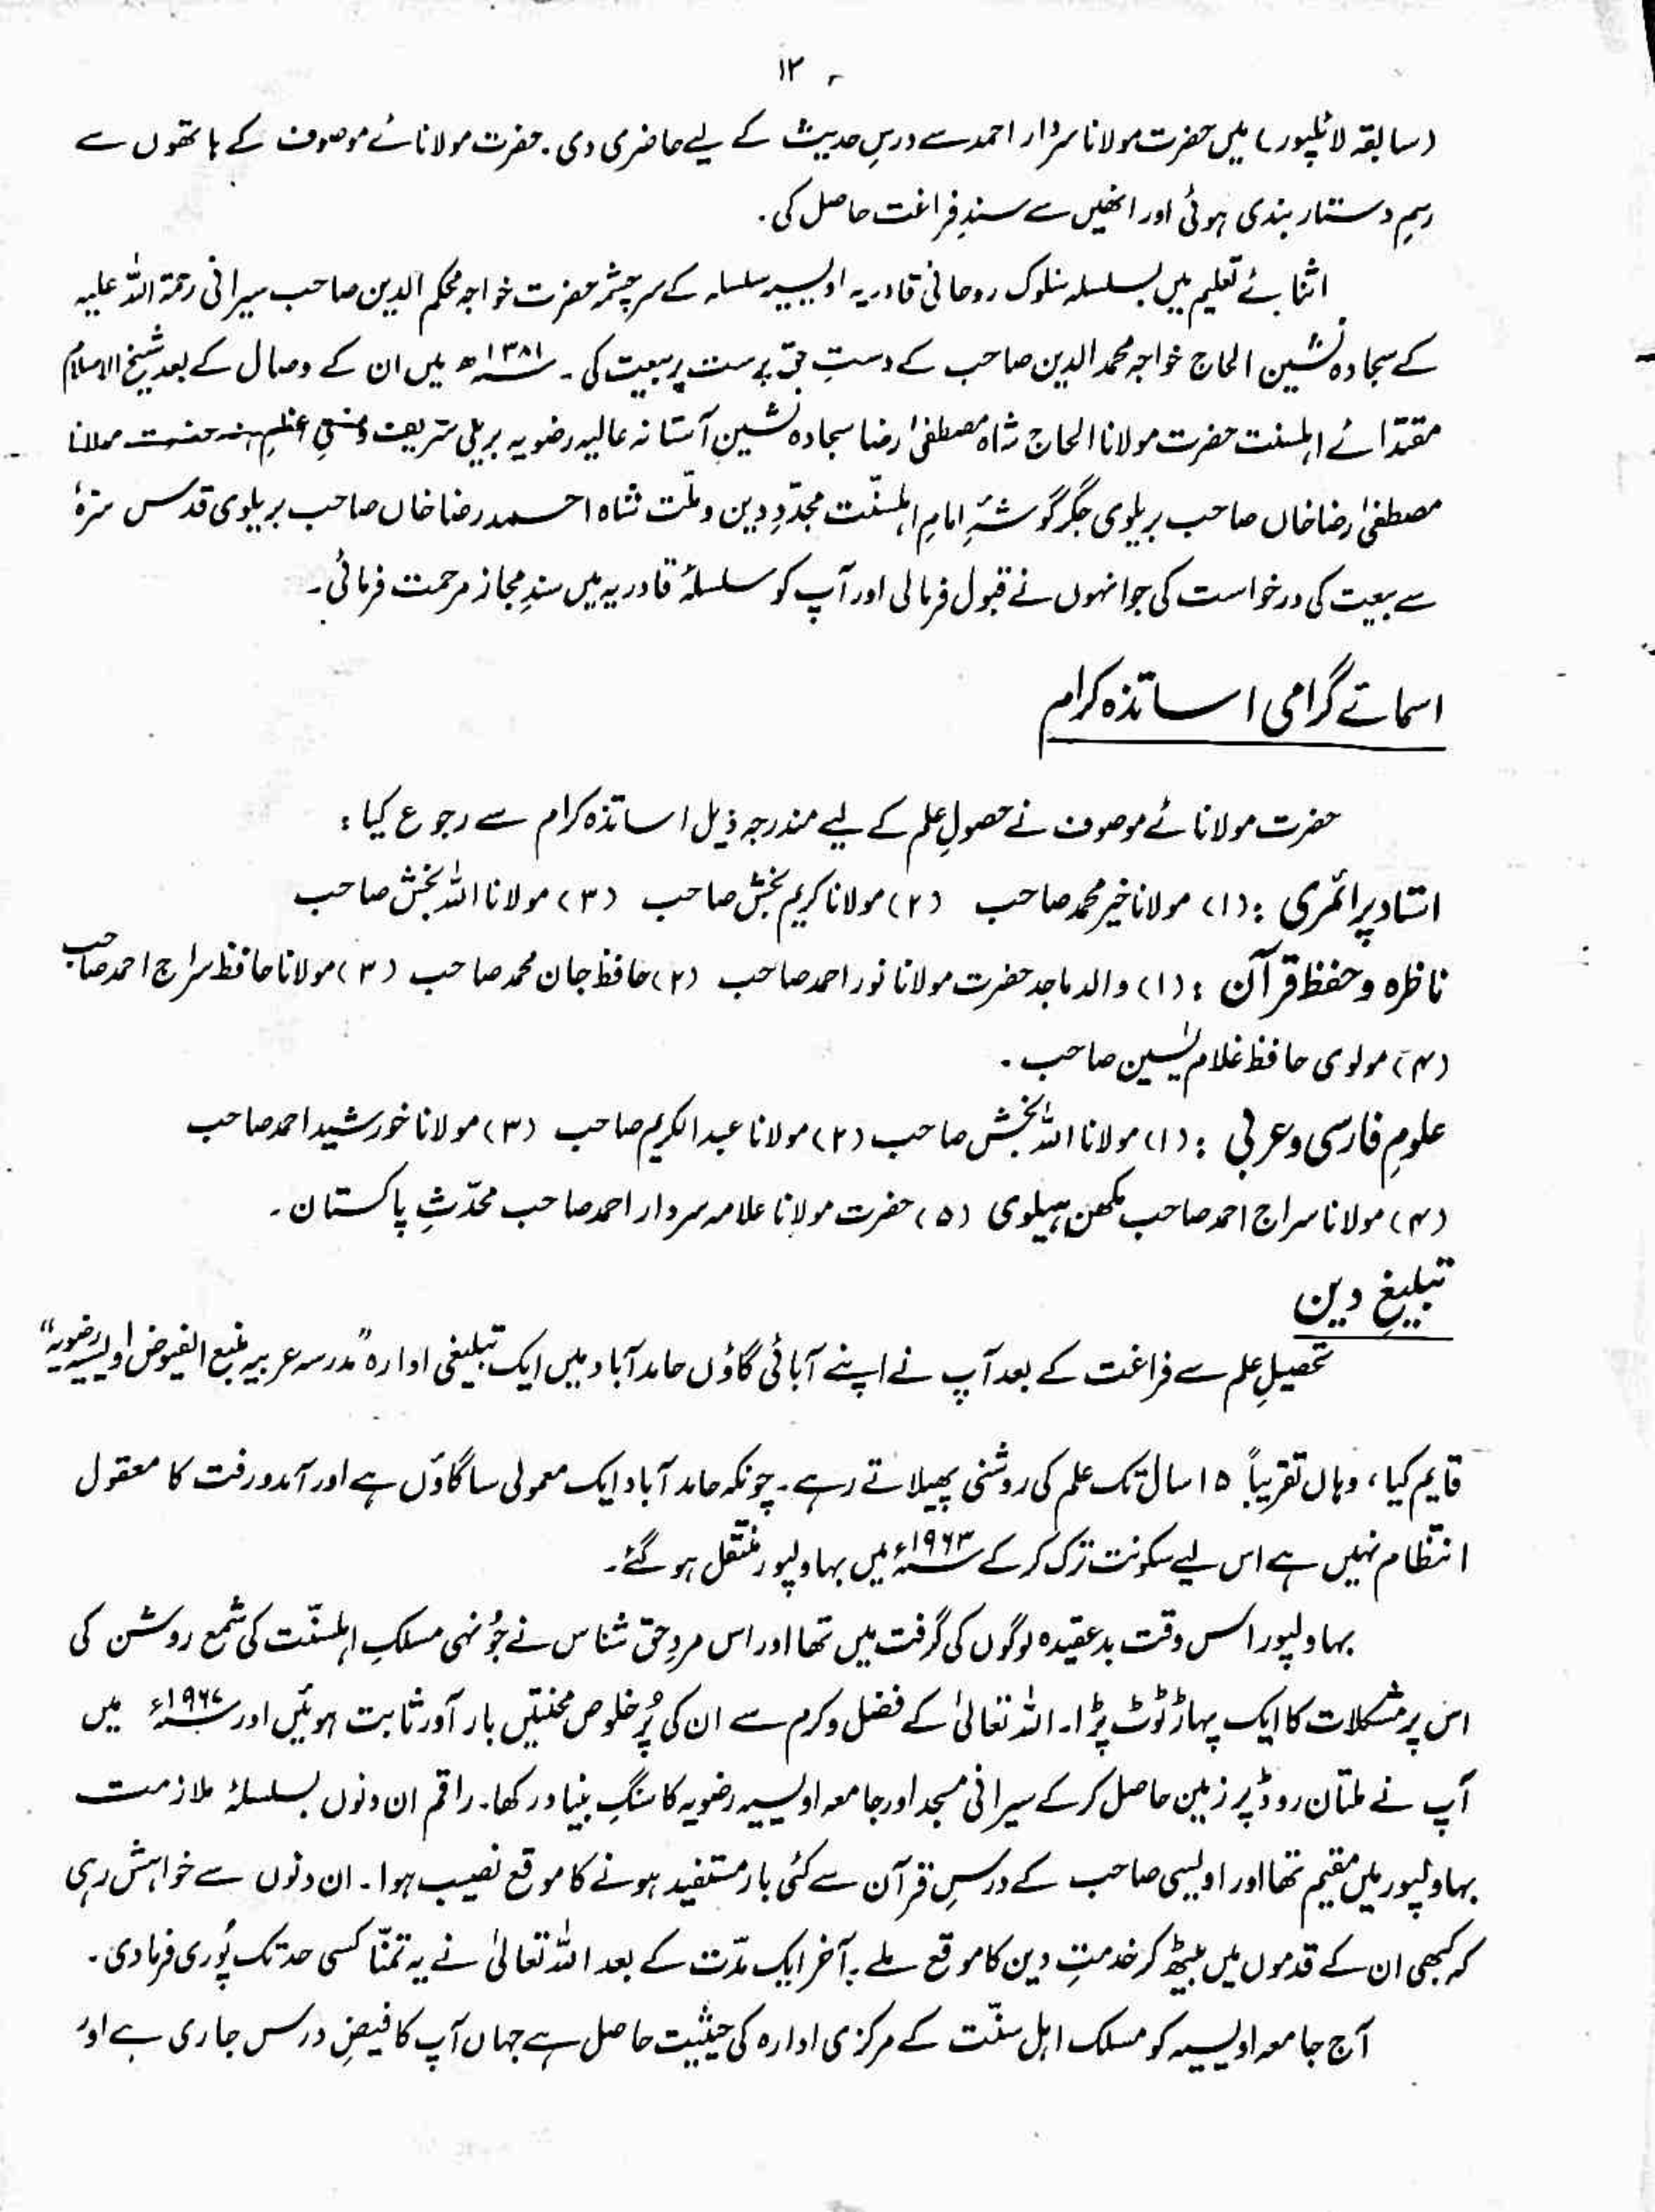 ۱۲
(سابقہ لائلپور) میں حضرت مولانا سردار احمد سے درسِ حدیث کے لیے حاضری دی۔ حضرت مولانائے موصوف کے ہاتھوں سے
رسمِ دستار بندی ہوئی اور انھیں سے سندِ فراغت حاصل کی۔
اثنائے تعلیم میں بسلسلہ سلوک روحانی قادریہ اویسیہ سلسلہ کے سرچشمہ حضرت خواجہ محکم الدین صاحب سیرانی رحمۃ اللہ علیہ
کے سجادہ نشین الحاج خواجہ محمد الدین صاحب کے دستِ حق پرست پر بیعت کی۔ ۱۳۸۱ھ میں ان کے وصال کے بعد شیخ الاسلام
مقتدائے اہلسنت حضرت مولانا الحاج شاہ مصطفیٰ رضا سجادہ نشینِ آستانہ عالیہ رضویہ بریلی شریف مفتیِ اعظمِ ہند حضرت مولانا
مصطفیٰ رضا خاں صاحب بریلوی جگر گوشۂ امامِ اہلسنّت مجدّدِ دین و ملّت شاہ احمد رضا خاں صاحب بریلوی قدس سرّہٗ
سے بیعت کی درخواست کی جو انہوں نے قبول فرمالی اور آپ کو سلسلۂ قادریہ میں سندِ مجاز مرحمت فرمائی۔
اسمائے گرامی اساتذہ کرام
حضرت مولانائے موصوف نے حصولِ علم کے لیے مندرجہ ذیل اساتذہ کرام سے رجوع کیا :
استاد پرائمری : (۱) مولانا خیر محمد صاحب (۲) مولانا کریم بخش صاحب (۳) مولانا اللہ بخش صاحب
ناظرہ و حفظ قرآن : (۱) والد ماجد حضرت مولانا نور احمد صاحب (۲) حافظ جان محمد صاحب (۳) مولانا حافظ سراج احمد صاحب
(۴) مولوی حافظ غلام یٰسین صاحب۔
علومِ فارسی و عربی : (۱) مولانا اللہ بخش صاحب (۲) مولانا عبد الکریم صاحب (۳) مولانا خورشید احمد صاحب
(۴) مولانا سراج احمد صاحب مکھن بیلوی (۵) حضرت مولانا علامہ سردار احمد صاحب محدّثِ پاکستان۔
تبلیغِ دین
تحصیلِ علم سے فراغت کے بعد آپ نے اپنے آبائی گاؤں حامد آباد میں ایک تبلیغی ادارہ "مدرسہ عربیہ منبع الفیوض اویسیہ رضویہ"
قایم کیا، وہاں تقریباً ۱۵ سال تک علم کی روشنی پھیلاتے رہے۔ چونکہ حامد آباد ایک معمولی سا گاؤں ہے اور آمدورفت کا معقول
انتظام نہیں ہے اس لیے سکونت ترک کرکے ۱۹۶۳ء میں بہاولپور منتقل ہو گئے۔
بہاولپور اس وقت بدعقیدہ لوگوں کی گرفت میں تھا اور اس مردِ حق شناس نے جُونہی مسلکِ اہلسنّت کی شمع روشن کی
اس پر مشکلات کا ایک پہاڑ ٹوٹ پڑا۔ اللہ تعالیٰ کے فضل و کرم سے ان کی پُرخلوص محنتیں بار آور ثابت ہوئیں اور ۱۹۶۷ء میں
آپ نے ملتان روڈ پر زمین حاصل کرکے سیرانی مسجد اور جامعہ اویسیہ رضویہ کا سنگِ بنیاد رکھا۔ راقم ان دنوں بسلسلۂ ملازمت
بہاولپور میں مقیم تھا اور اویسی صاحب کے درسِ قرآن سے کئی بار مستفید ہونے کا موقع نصیب ہوا۔ ان دنوں سے خواہش رہی
کہ کبھی ان کے قدموں میں بیٹھ کر خدمتِ دین کا موقع ملے۔ آخر ایک مدّت کے بعد اللہ تعالیٰ نے یہ تمنّا کسی حد تک پُوری فرما دی۔
آج جامعہ اویسیہ کو مسلک اہل سنّت کے مرکزی ادارہ کی حیثیت حاصل ہے جہاں آپ کا فیضِ درس جاری ہے اور